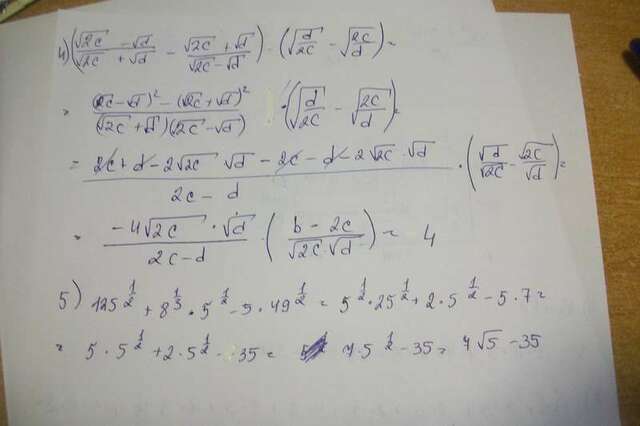 4) (√2c - √d / √2c + √d - √2c + √d / √2c - √d) · (√d/2c - √2c/d) =
= (√2c - √d)² - (√2c + √d)² / (√2c + √d)(√2c - √d) · (√d/2c - √2c/d) =
= 2c + d - 2√2c √d - 2c - d - 2√2c · √d / 2c - d · (√d/√2c - √2c/√d) =
= -4√2c · √d / 2c - d · (b - 2c / √2c · √d) = 4
5) 125^1/2 + 8^1/3 · 5^1/2 - 5 · 49^1/2 = 5^1/2 · 25^1/2 + 2 · 5^1/2 - 5 · 7 =
= 5 · 5^1/2 + 2 · 5^1/2 - 35 = 7 · 5^1/2 - 35 = 7√5 - 35